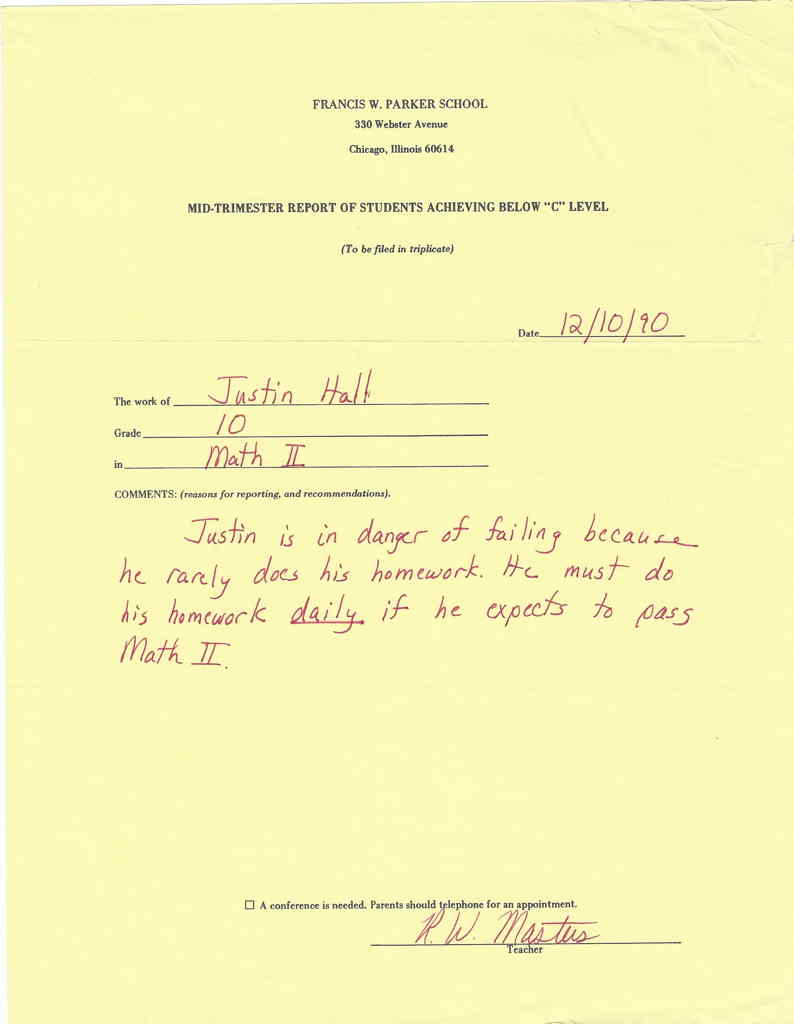 FRANCIS W. PARKER SCHOOL
330 Webster Avenue
Chicago, Illinois 60614
MID-TRIMESTER REPORT OF STUDENTS ACHIEVING BELOW "C" LEVEL
(To be filed in triplicate)
Date 12/10/90
The work of Justin Hall
Grade 10
in Math II
COMMENTS: (reasons for reporting, and recommendations).
Justin is in danger of failing because
he rarely does his homework. He must do
his homework daily if he expects to pass
Math II.
☐ A conference is needed. Parents should telephone for an appointment.
R. W. Masters
Teacher